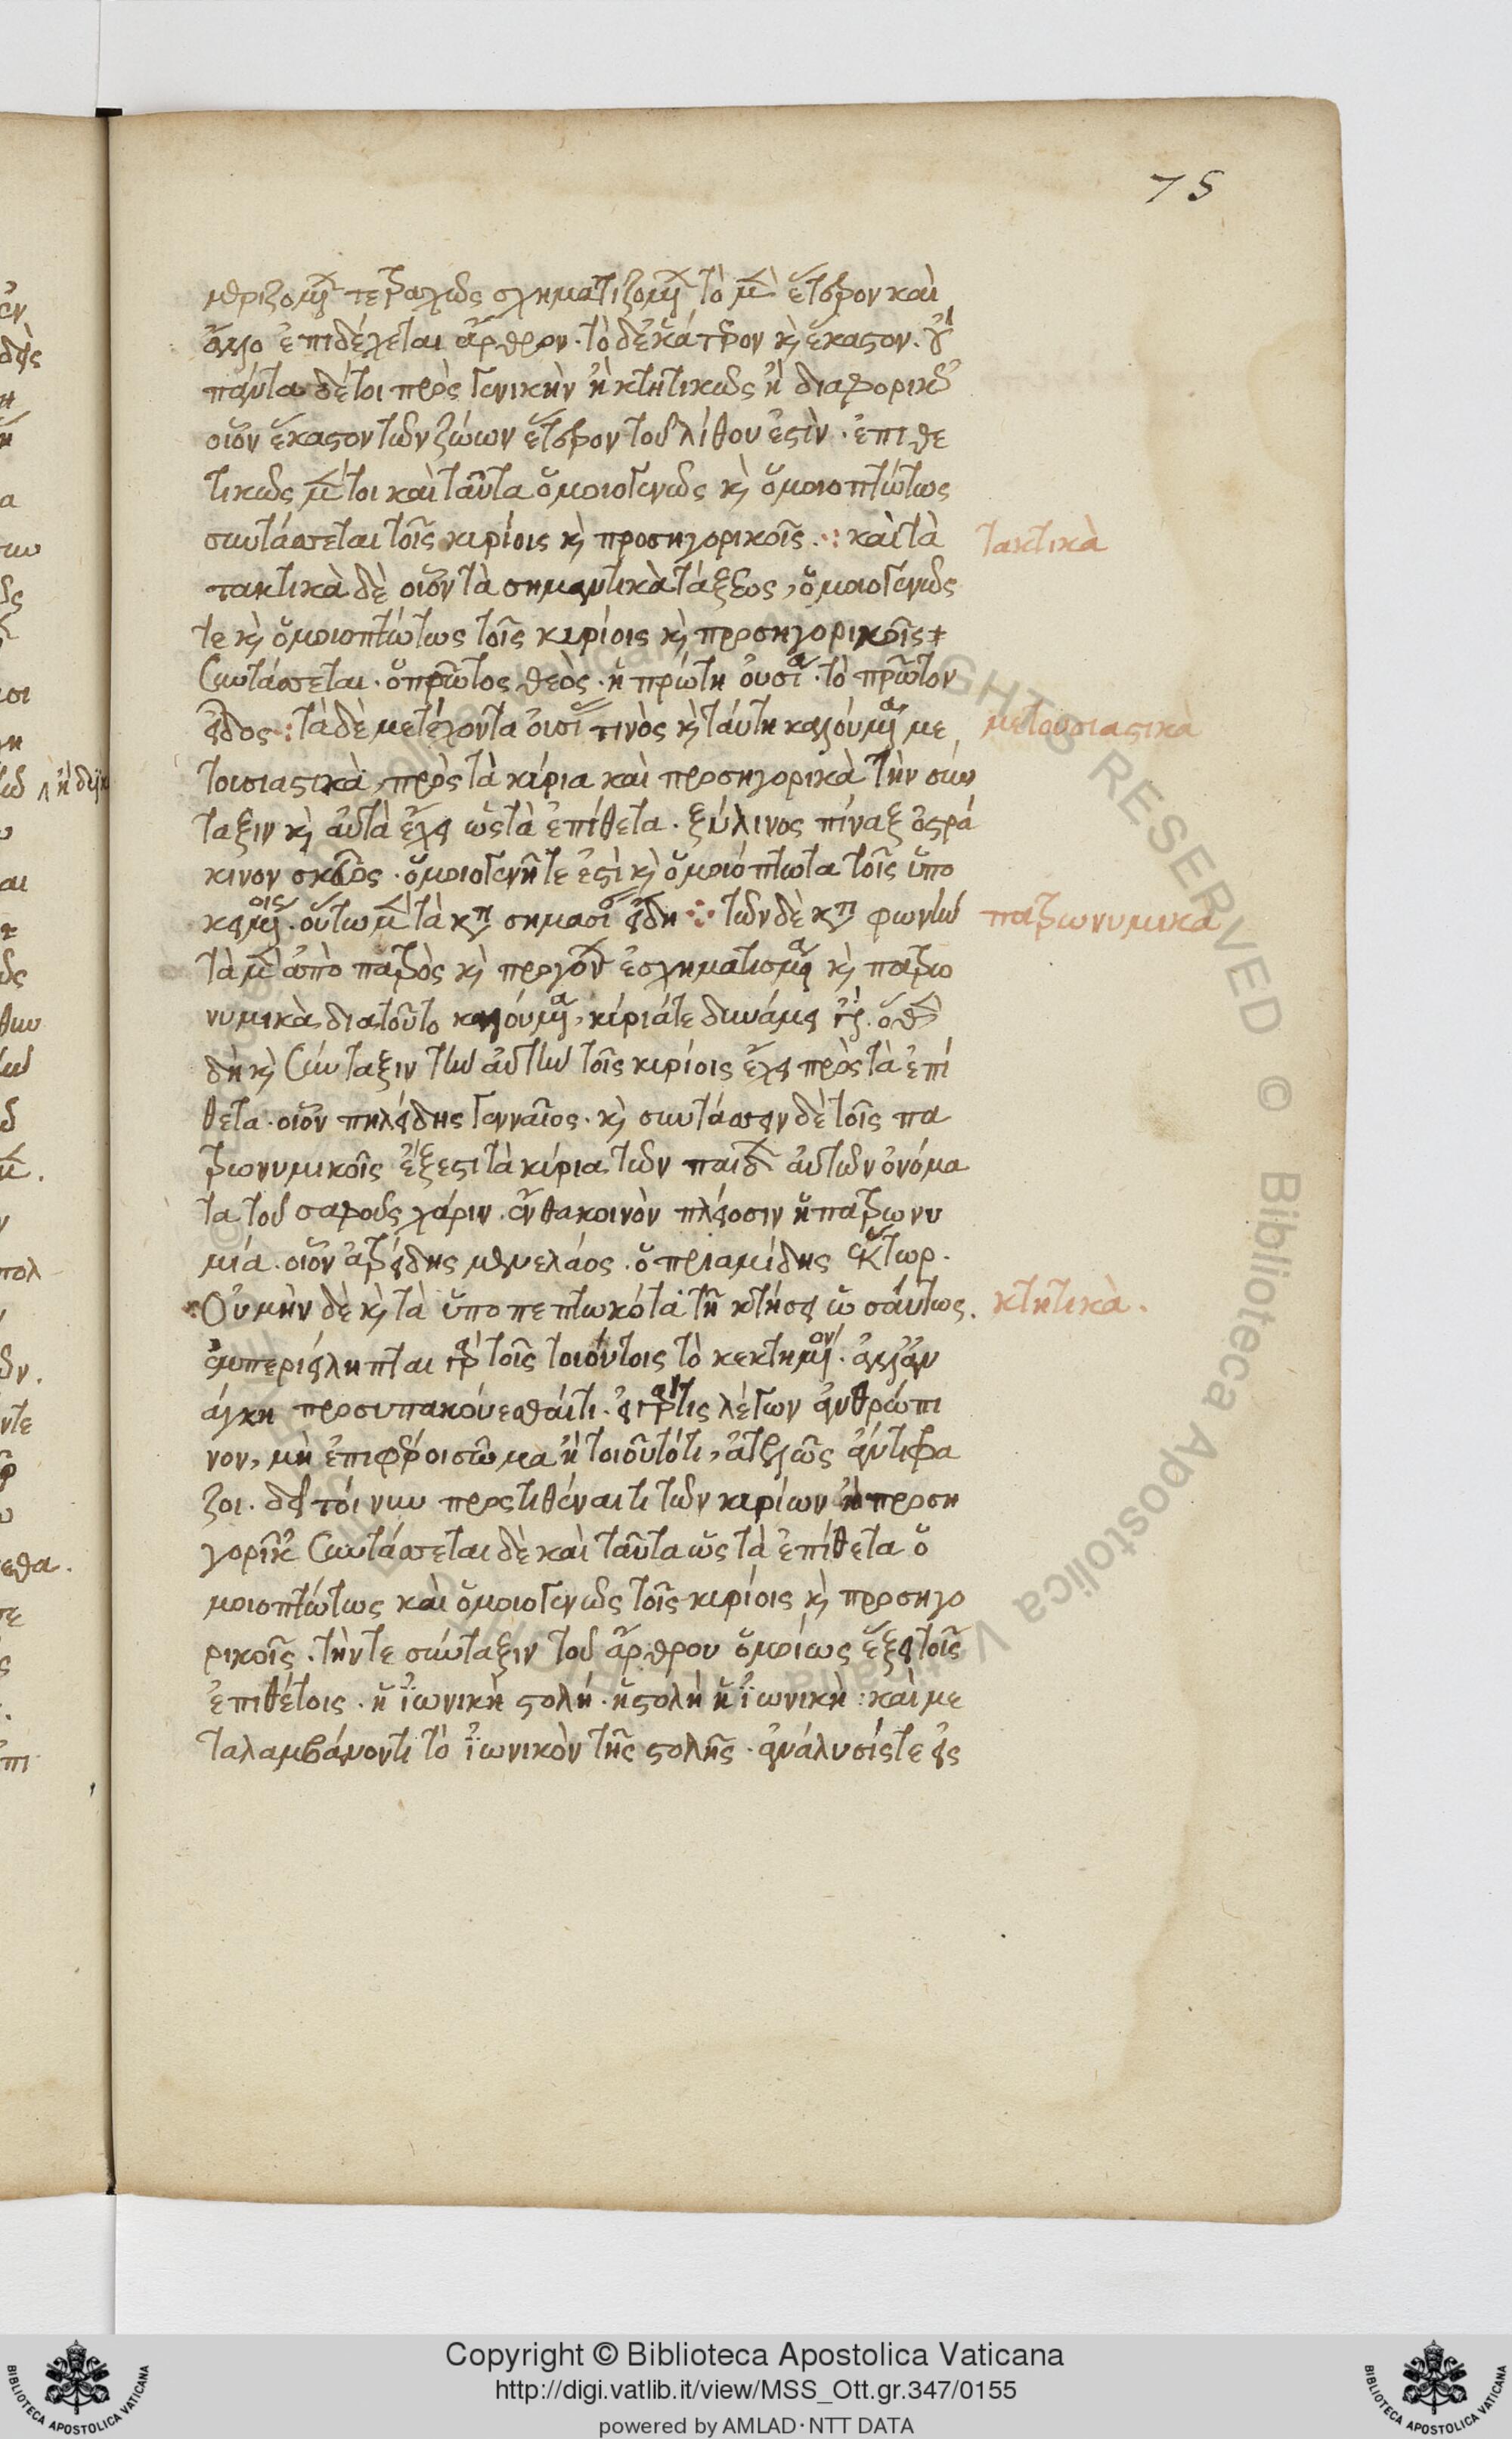 75
μεριζομένων τετραχῶς σχηματιζομένων τὸ μὲν ἕτερον καὶ
ἄλλο ἐπιδέχεται ἄρθρον. τὸ δὲ ἑκάτερον κὶ ἕκαστον. οὔ
πάντα δέτοι πρὸς γενικὴν ἢ κτητικῶς ἢ διαφορικῶς
οἷον ἕκαστον τῶν ζώων ἕτερον τοῦ λίθου ἐστὶν. ἐπιθε
τικῶς μέντοι καὶ ταῦτα ὁμοιογενῶς κὶ ὁμοιοπτώτως
συντάσσεται τοῖς κυρίοις κὶ προσηγορικοῖς. καὶ τὰ
τακτικὰ
τακτικὰ δὲ οἷον τὰ σημαντικὰ τάξεως, ὁμοιογενῶς
τε κὶ ὁμοιοπτώτως τοῖς κυρίοις κὶ προσηγορικοῖς
συντάσσεται. ὁ πρῶτος θεὸς. ἡ πρώτη οὐσία. τὸ πρῶτον
εἶδος: τὰ δὲ μετέχοντα οὐσίας τινὸς κὶ ταύτῃ καλούμενα με
μετουσιαστικὰ
τουσιαστικὰ, πρὸς τὰ κύρια καὶ προσηγορικὰ τὴν σύν
ταξιν κὶ αὐτὰ ἔχει ὡς τὰ ἐπίθετα. ξύλινος πίναξ ὀστρά
κινον σκεῦος. ὁμοιογενῆ τε ἐστὶ κὶ ὁμοιόπτωτα τοῖς ὑπο
κειμένοις. οὕτω μὲν τὰ κατὰ σημασίαν εἴδη τῶν δὲ κατὰ φωνὴν
πατρωνυμικὰ
τὰ μὲν ἀπὸ πατρὸς κὶ προγόνων ἐσχηματισμένα κὶ πατρω
νυμικὰ διατοῦτο καλούμενα, κύριά τε δυνάμει ἐστί. ὅθεν
δὴ κὶ σύνταξιν τὴν αὐτὴν τοῖς κυρίοις ἔχει πρὸς τὰ ἐπί
θετα. οἷον πηλείδης γενναῖος. κὶ συντάσσειν δὲ τοῖς πα
τρωνυμικοῖς ἔξεστι τὰ κύρια τῶν παίδων αὐτῶν ὀνόμα
τα τοῦ σαφοῦς χάριν. ἔνθα κοινὸν πλείοσιν ἡ πατρωνυ
μία. οἷον ἀτρείδης μενελάος. ὁ πριαμίδης ἕκτωρ.
Οὐ μὴν δὲ κὶ τὰ ὑποπεπτωκότα τῇ κτήσει ὡσαύτως.
κτητικὰ.
ἐμπεριείληπται γὰρ τοῖς τοιούτοις τὸ κεκτημένον. ἀλλ' ἀν
άγκη προσυπακούεσθαί τι. εἰ γάρ τις λέγων ἀνθρώπι
νον, μὴ ἐπιφέροι σῶμα ἢ τοιοῦτό τι, ἀτελῶς ἂν τι φρά
ζοι. δεῖ τοίνυν προστιθέναι τι τῶν κυρίων ἢ προση
γορικῶν συντάσσεται δὲ καὶ ταῦτα ὡς τὰ ἐπίθετα ὁ
μοιοπτώτως καὶ ὁμοιογενῶς τοῖς κυρίοις κὶ προσηγο
ρικοῖς. τήν τε σύνταξιν τοῦ ἄρθρου ὁμοίως ἕξει τοῖς
ἐπιθέτοις. ἡ ἰωνικὴ στολή. ἡ στολὴ ἡ ἰωνικὴ: καὶ με
ταλαμβάνοντι τὸ ἰωνικὸν τῆς στολῆς. ἀνάλυσίς τε εἰς
Copyright © Biblioteca Apostolica Vaticana
http://digi.vatlib.it/view/MSS_Ott.gr.347/0155
powered by AMLAD·NTT DATA